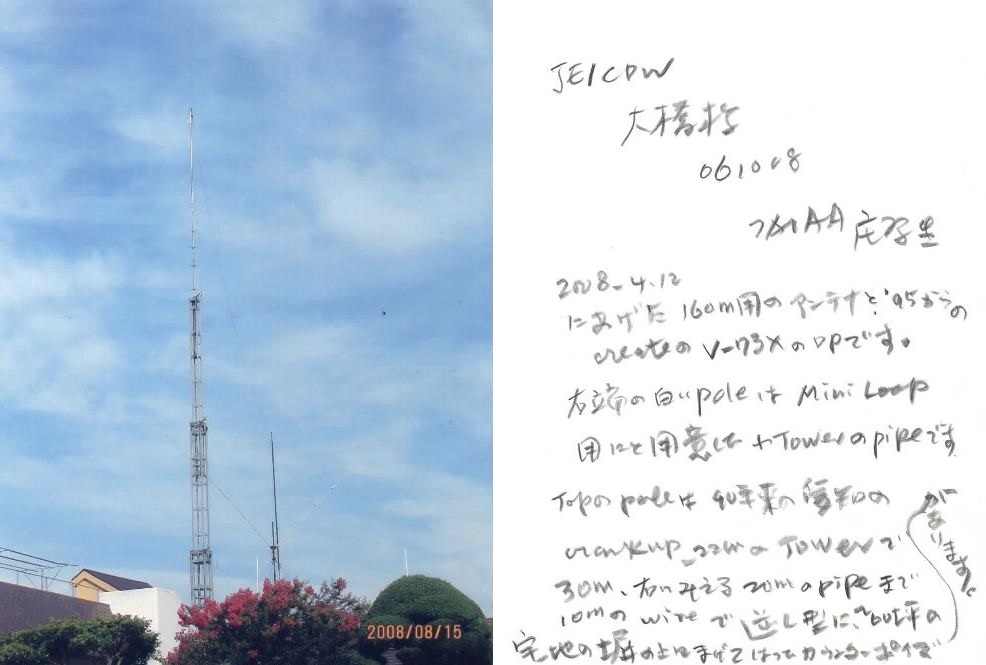 2008/08/15
JE1CDW
大橋
061008
2008-4.12
にあげた160m用のアンテナと'95からの
createのV-73XのDPです。
右端の白いpoleはMini Loop
用にと用意した Towerのpipeです
Topのpoleは 愛知の
crankup 22mのTowerで
30m、右にみえる20mのpipeまで
10mのwireで逆L型に、
がまります。
宅地の の上に まげてはったカウンターポイズ